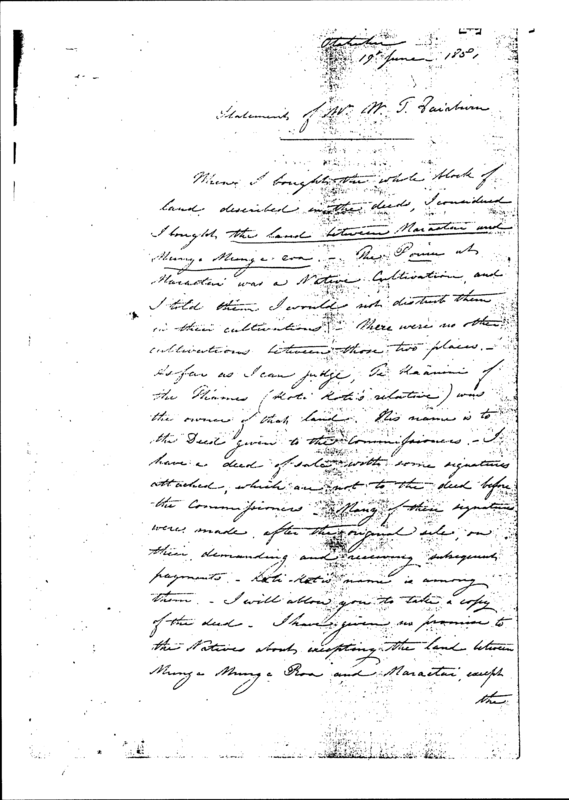 October
19th June 1851
Statement of Mr. W. T. Fairburn
When I bought the whole block of
land described in the deed, I considered
I bought the land between Maraetai and
Munga Munga-roa. - The Point at
Maraetai was a Native Cultivation and
I told them I would not disturb them
in their cultivations - There were no other
cultivations between those two places. -
As far as I can judge, Te Haunui of
the Thames (Hoti Hoti's relative) was
the owner of that land. His name is to
the Deed given to the Commissioners. - I
have a deed of sale with some signatures
attached, which are not to the deed before
the Commissioners - Many of these signatures
were made, after the original sale, on
their demanding and receiving subsequent
payments. - Hoti Hoti's name is among
them. - I will allow you to take a copy
of the deed - I have given no promise to
the Natives about excepting the land between
Munga Munga Roa and Maraetai, except
the